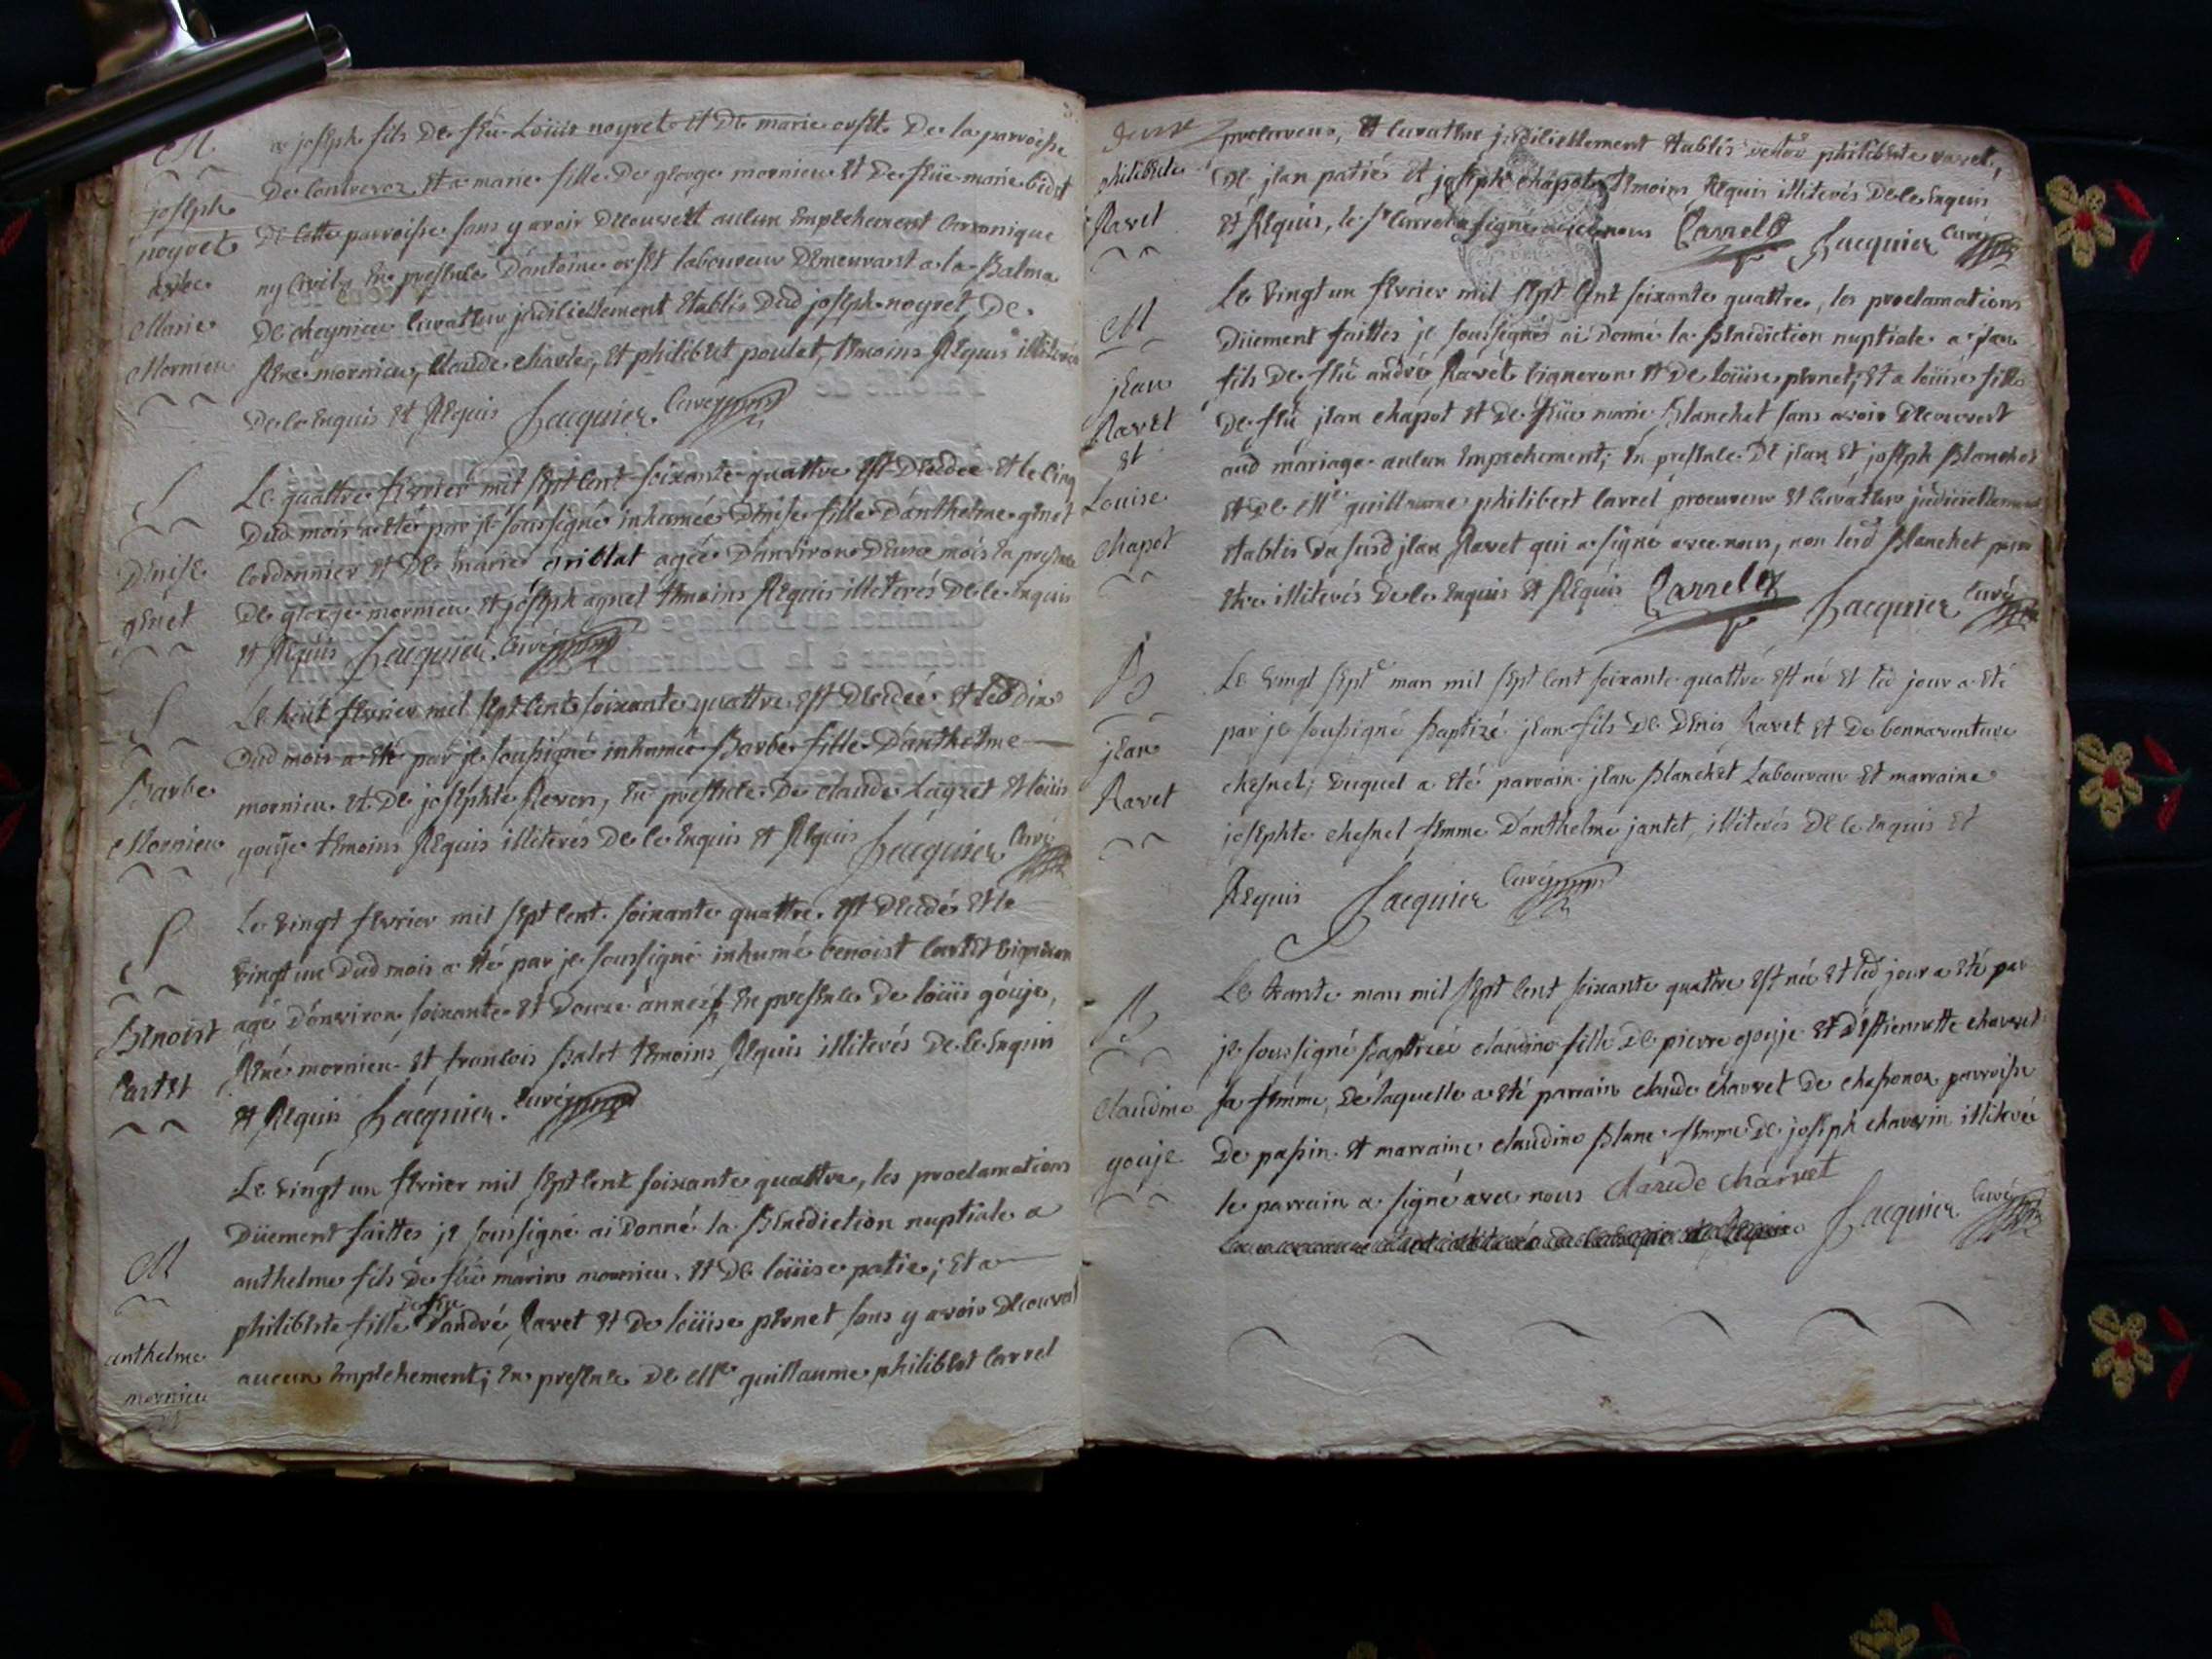 M
joseph
noyret
avec
Marie
Mornieu
a joseph fils De feu Loüis noyret et De marie orset De la parroisse
De Contrevoz, et a marie fille De george mornieu et De feüe marie bidet
De Cette parroisse sans y avoir Decouvert aucun Empechement Canonique
ny Civil, En presence D'antoine orset laboureur Demeurant a la Balma
De cheynieu Curateur judiciellement Etablis Dud joseph noyret, De
René mornieu, Claude charles, Et philibert poulet, temoins Requis illiterés
De ce Enquis et Requis Jacquier Curé
S
Denise
genet
Le quattre fevrier mil sept cent soixante quattre est Decedée et le cinq
Dud mois a eté par je soussigné inhumée Denise fille D'anthelme genet
Cordonnier et De marie grillat agée D'anviron Deux mois En presence
De george mornieu et joseph agnel temoins Requis illiterés De ce Enquis
et Requis Jacquier Curé
S
Barbe
Mornieu
Le heut fevrier mil sept cent soixante quattre est Decedée et led Dix
Dud mois a eté par je soussigné inhumée Barbe fille D'anthelme
mornieu et De josephte Reven, En presence De claude Lagret et loüis
gouje temoins Requis illiterés De ce Enquis et Requis Jacquier Curé
S
Benoist
Cartet
Le vingt fevrier mil sept cent soixante quattre est Decedés et le
vingt un Dud mois a eté par je soussigné inhumé benoist Cartet Vigneron
agé D'anviron soixante et Douze années En presence De loüis gouje,
René mornieu et francois Balet temoins Requis illiterés De ce Enquis
et Requis Jacquier Curé
M
anthelme
mornieu
et
Le vingt un fevrier mil sept cent soixante quattre, les proclamations
Düement faittes je soussigné ai Donné la Benediction nuptiale a
anthelme fils De feü marin mornieu et De loüise patie; Et a
philiberte fille De feu D'andré Ravet et De loüise pernet sans y avoir Decouvert
aucun Empechement; En presence De Me guillaume philibert Carrel
philiberte
Ravet
procureur, et Curateur judiciellement Etablis philiberte ravet,
De jean patié et joseph chapot temoins Requis illiterés De ce Enquis
et Requis, le Sr Carrel a signé avec nous Carrel Jacquier Curé
M
jean
Ravet
et
Louise
chapot
Le vingt un fevrier mil sept cent soixante quattre, les proclamations
Düement faittes je soussigné ai Donné la Benediction nuptiale a jean
fils De feü andré Ravet Vigneron et De loüise pernet; et a loüise fille
De feü jean chapot et De feüe marie Blanchet sans avoir Decouvert
aud mariage aucun Empechement; En presence De jean et joseph Blanchet
et De Me guillaume philibert Carrel procureur et Curateur judiciellement
Etablis Du susd jean Ravet qui a signé avec nous, non lesd Blanchet pour
etre illiterés De ce Enquis et Requis Carrel Jacquier Curé
B
jean
Ravet
Le vingt sept mars mil sept cent soixante quattre est né et led jour a eté
par je soussigné Baptizé jean fils De Denis Ravet et De bonnaventure
chesnel; Duquel a eté parrain jean Blanchet Laboureur et marraine
josephte chesnel femme D'anthelme jantet, illiterés De ce Enquis et
Requis Jacquier Curé
B
Claudine
gouje
Le trante mars mil sept cent soixante quattre est née et led jour a eté par
je soussigné Baptizée claudine fille De pierre gouje et D'Estiennette charvet
sa femme, De laquelle a eté parrain claude charvet De chaponox parroisse
De passin et marraine claudine Blanc femme De joseph charvin illiterée
le parrain a signé avec nous Claude Charvet
Jacquier Curé